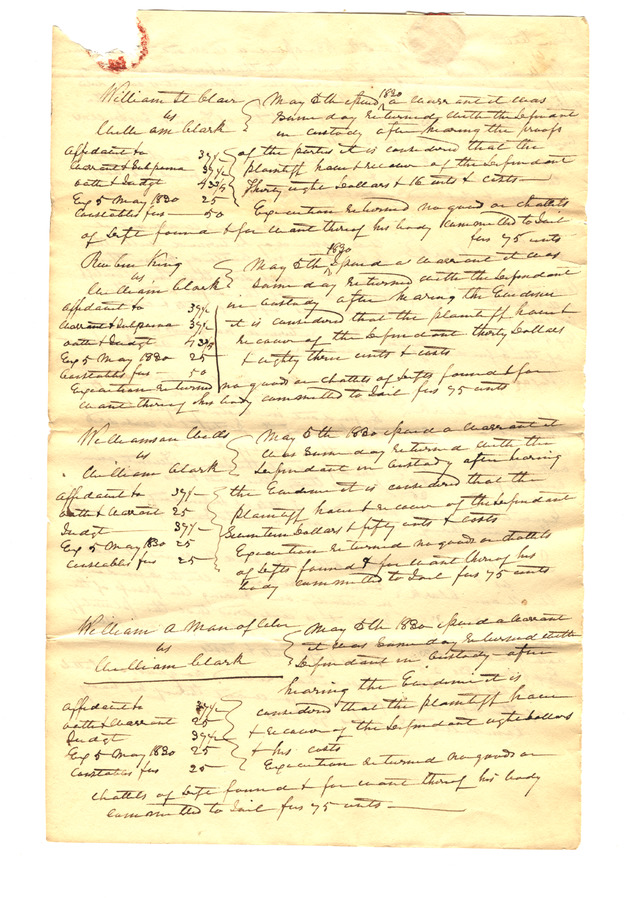 William St Clair
vs
William Clark
May 5th issued 1830 a warrant it was
same day returned with the defendant
in custody after hearing the proofs
of the parties it is considered that the
plaintiff have & recover of the defendant
Thirty eight Dollars & 16 cents & costs—
Execution returned no goods or chattels
of Defts found & for want thereof his body committed to Jail
fees 75 cents
affidavit to 37½
warrant & subpoena 37½
oath & Judgt
Exn 5 May 1830 25
Constables fees — 50
Reuben King
vs
William Clark
May 5th 1830 issued a warrant it was
same day returned with the defendant
in custody after hearing the Evidence
it is considered that the plaintiff have &
recover of the defendant thirty Dollars
& eighty three cents & costs
affidavit to 37½
warrant & subpoena 37½
oath & Judgt
Exn 5 May 1830 25
Constables fees — 50
Execution returned no goods or chattels of Defts found & for
want thereof his body committed to Jail fees 75 cents
Williamson
vs
William Clark
May 5th 1830 issued a warrant it
was same day returned with the
defendant in custody after hearing
the Evidence it is considered that the
plaintiff have & recover of the defendant
Seventeen Dollars & fifty cents & costs
Execution returned no goods or chattels
of Defts found & for want thereof his
body committed to Jail fees 75 cents
affidavit to 37½
oath & warrant 25
Judgt 37½
Exn 5 May 1830 25
Constables fees 25
William A Man of Color
vs
William Clark
May 5th 1830 issued a warrant
it was same day returned with
defendant in custody — after
hearing the Evidence it is
considered that the plaintiff have
& recover of the defendant eight Dollars
& his costs
Execution returned no goods or
affidavit to 37½
oath & warrant 25
Judgt 37½
Exn 5 May 1830 25
Constables fees 25
chattels of Deft found & for want thereof his body
committed to Jail fees 75 cents —